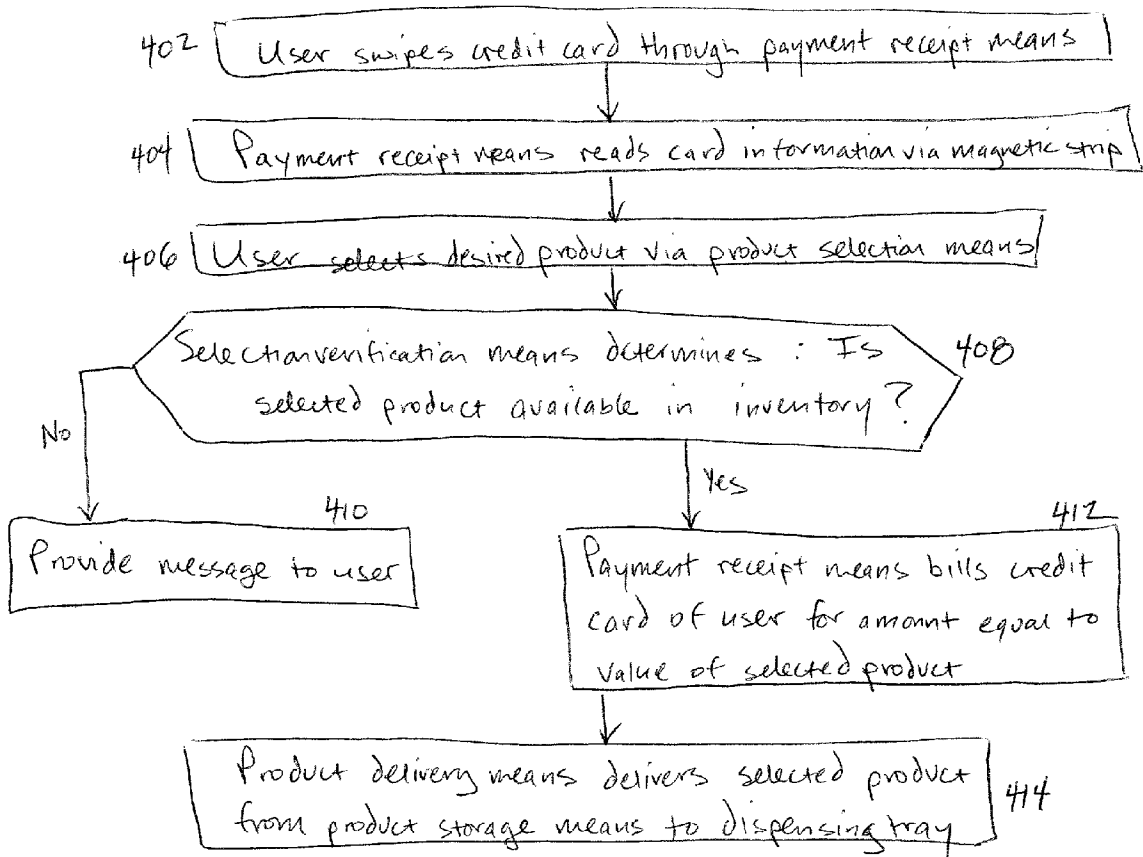 402 User swipes credit card through payment receipt means
404 Payment receipt means reads card information via magnetic strip
406 User selects desired product via product selection means
Selection verification means determines : Is
408
selected product available in inventory?
No
Yes
410
Provide message to user
412
Payment receipt means bills credit
card of user for amount equal to
value of selected product
Product delivery means delivers selected product
from product storage means to dispensing tray
414